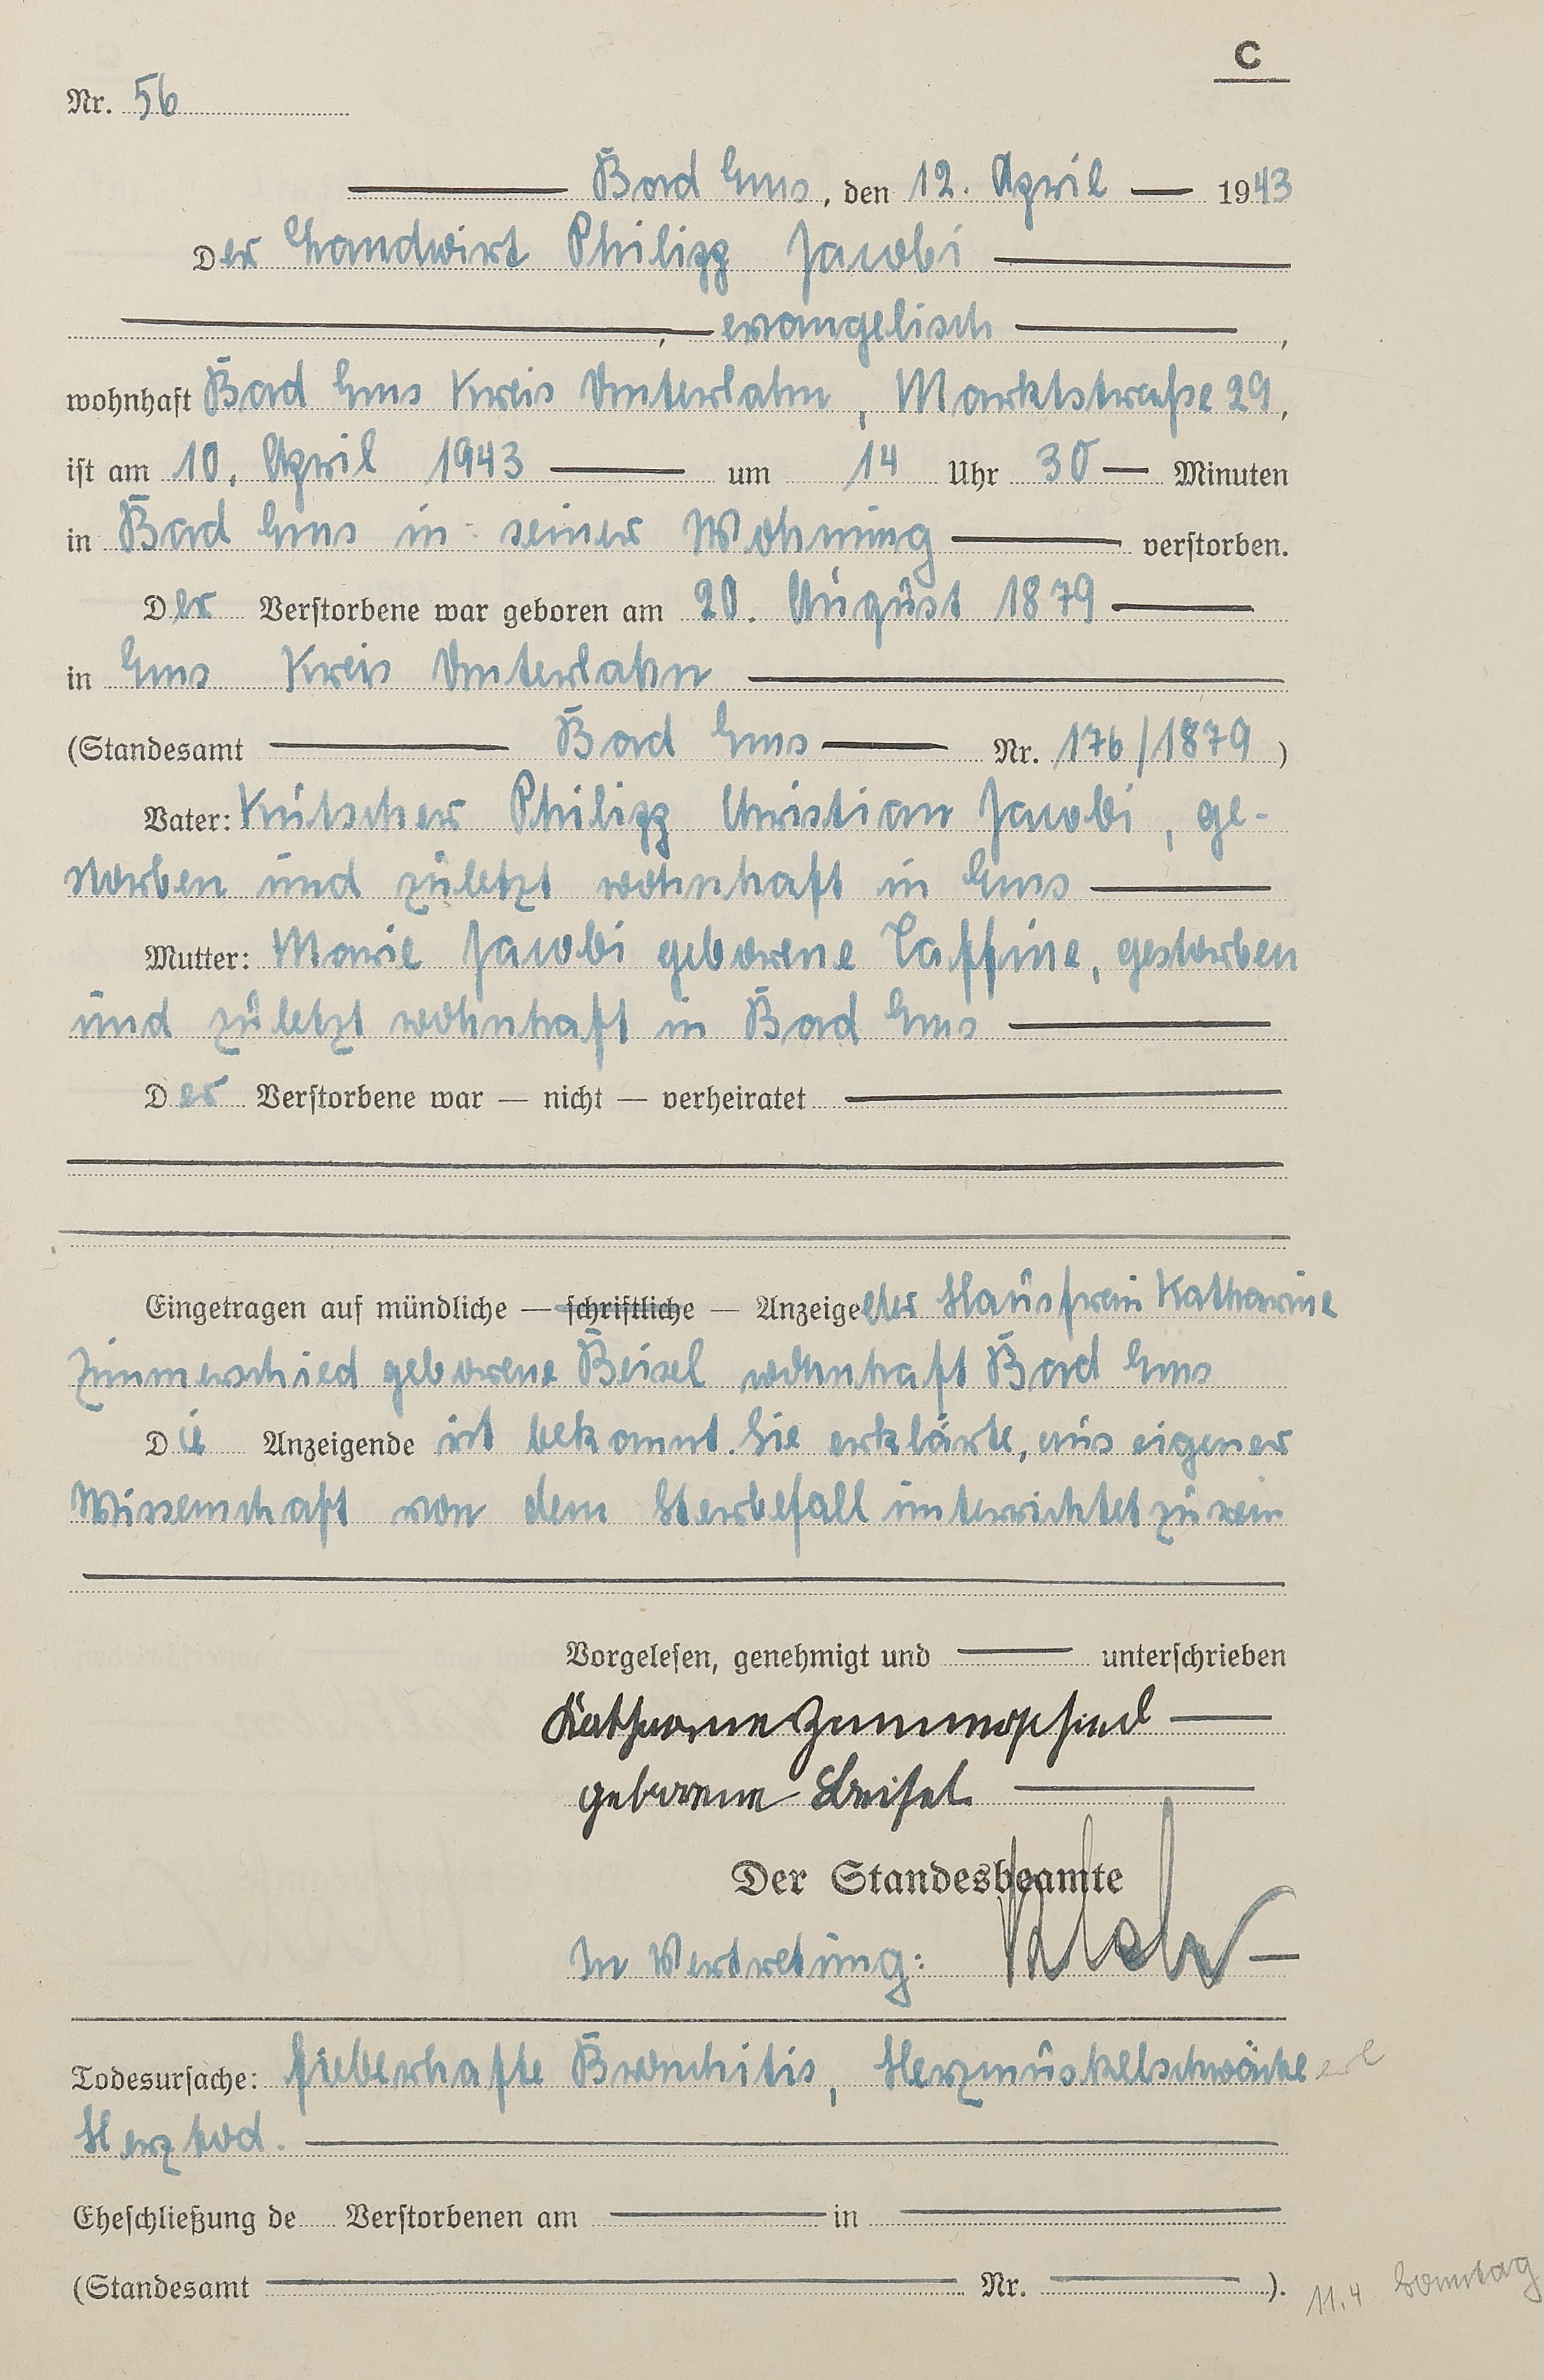 C
Nr. 56
Bad Ems, den 12. April 1943
Der Landwirt Philipp Jacobi
, evangelisch ,
wohnhaft Bad Ems Kreis Unterlahn, Marktstraße 29,
ist am 10. April 1943 um 14 Uhr 30 Minuten
in Bad Ems in seiner Wohnung verstorben.
Der Verstorbene war geboren am 20. August 1879
in Ems Kreis Unterlahn
(Standesamt Bad Ems Nr. 176/1879)
Vater: Kutscher Philipp Christian Jacobi, ge-
storben und zuletzt wohnhaft in Ems
Mutter: Marie Jacobi geborene, gestorben
und zuletzt wohnhaft in Bad Ems
Der Verstorbene war — nicht — verheiratet
Eingetragen auf mündliche — schriftliche — Anzeige der Hausfrau Katharine
Zimmerschied geborene Beisel wohnhaft Bad Ems
Die Anzeigende ist bekannt. Sie erklärte, aus eigener
Wissenschaft von dem Sterbefall unterrichtet zu sein
Vorgelesen, genehmigt und unterschrieben
Katharine Zimmerschied
geborene Beisel
Der Standesbeamte
In Vertretung:
Todesursache: fieberhafte Bronchitis, Herzmuskelschwäche
Herztod.
Eheschließung de Verstorbenen am in
(Standesamt Nr. ).
11.4 Sonntag